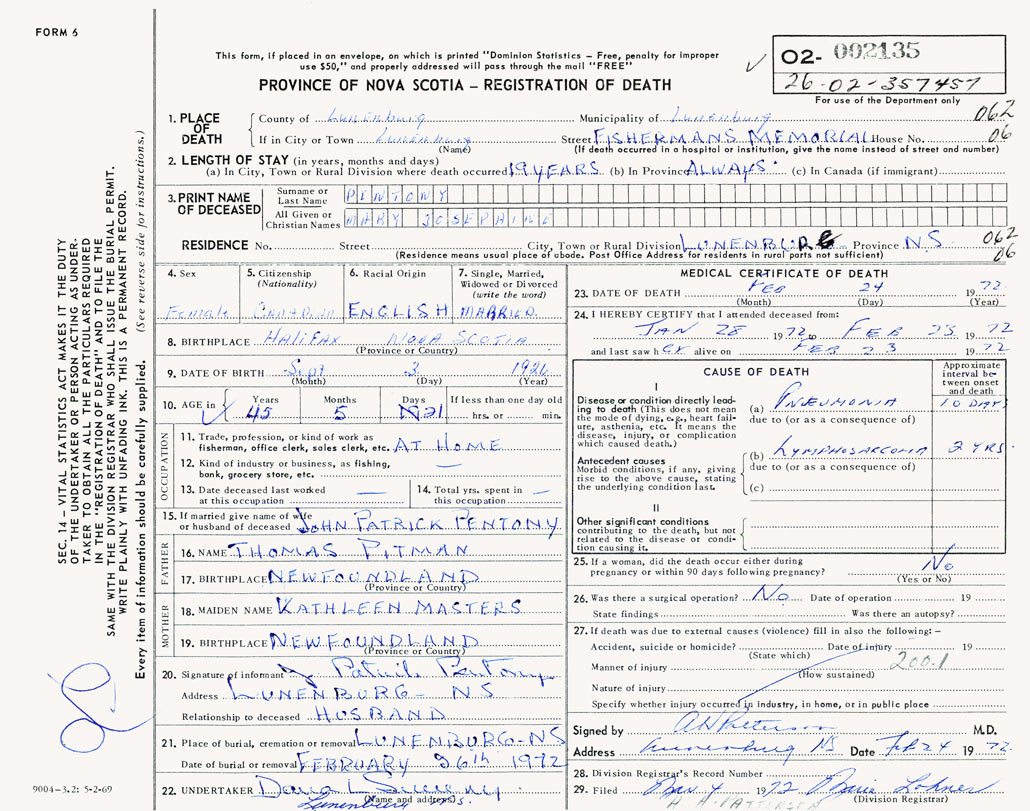 FORM 6
This form, if placed in an envelope, on which is printed "Dominion Statistics – Free, penalty for improper
use $50," and properly addressed will pass through the mail "FREE"
PROVINCE OF NOVA SCOTIA – REGISTRATION OF DEATH
02- 002135
26-02-357457
For use of the Department only
SEC. 14 – VITAL STATISTICS ACT MAKES IT THE DUTY
OF THE UNDERTAKER OR PERSON ACTING AS UNDER-
TAKER TO OBTAIN ALL THE PARTICULARS REQUIRED
IN THE "REGISTRATION OF DEATH" AND TO FILE THE
SAME WITH THE DIVISION REGISTRAR WHO SHALL ISSUE THE BURIAL PERMIT.
WRITE PLAINLY WITH UNFADING INK. THIS IS A PERMANENT RECORD.
Every item of information should be carefully supplied. (See reverse side for instructions.)
1. PLACE OF DEATH
County of Lunenburg Municipality of Lunenburg 062
If in City or Town Lunenburg Street FISHERMANS MEMORIAL House No. 06
(Name) (If death occurred in a hospital or institution, give the name instead of street and number)
2. LENGTH OF STAY (in years, months and days)
(a) In City, Town or Rural Division where death occurred 19 YEARS (b) In Province ALWAYS (c) In Canada (if immigrant)
3. PRINT NAME OF DECEASED
Surname or Last Name PENTONY
All Given or Christian Names MARY JOSEPHINE
RESIDENCE No. Street City, Town or Rural Division LUNENBURG Province N.S. 062
(Residence means usual place of abode. Post Office Address for residents in rural parts not sufficient) 06
4. Sex
Female
5. Citizenship
(Nationality)
Canadian
6. Racial Origin
ENGLISH
7. Single, Married,
Widowed or Divorced
(write the word)
MARRIED.
8. BIRTHPLACE HALIFAX NOVA SCOTIA
(Province or Country)
9. DATE OF BIRTH Sept 3 1926
(Month) (Day) (Year)
10. AGE in Years Months Days If less than one day old
45 5 21 hrs. or min.
OCCUPATION
11. Trade, profession, or kind of work as
fisherman, office clerk, sales clerk, etc. AT HOME
12. Kind of industry or business, as fishing,
bank, grocery store, etc. —
13. Date deceased last worked
at this occupation —
14. Total yrs. spent in
this occupation —
15. If married give name of wife
or husband of deceased JOHN PATRICK PENTONY
FATHER
16. NAME THOMAS PITMAN
17. BIRTHPLACE NEWFOUNDLAND
(Province or Country)
MOTHER
18. MAIDEN NAME KATHLEEN MASTERS
19. BIRTHPLACE NEWFOUNDLAND
(Province or Country)
20. Signature of informant J Patrick Pentony
Address LUNENBURG – NS
Relationship to deceased HUSBAND
21. Place of burial, cremation or removal LUNENBURG-NS
Date of burial or removal FEBRUARY 26th 1972
22. UNDERTAKER
(Name and address)
Lunenburg
9004-3.2: 5-2-69
MEDICAL CERTIFICATE OF DEATH
23. DATE OF DEATH FEB 24 1972.
(Month) (Day) (Year)
24. I HEREBY CERTIFY that I attended deceased from:
JAN 28 1972 to FEB 23 1972
and last saw her alive on FEB 23 1972
CAUSE OF DEATH
Approximate
interval be-
tween onset
and death
I
Disease or condition directly lead-
ing to death (This does not mean
the mode of dying, e.g., heart fail-
ure, asthenia, etc. It means the
disease, injury, or complication
which caused death.)
(a) PNEUMONIA 10 DAYS
due to (or as a consequence of)
Antecedent causes
Morbid conditions, if any, giving
rise to the above cause, stating
the underlying condition last.
(b) LYMPHOSARCOMA 2 YRS.
due to (or as a consequence of)
(c)
II
Other significant conditions
contributing to the death, but not
related to the disease or condi-
tion causing it.
25. If a woman, did the death occur either during
pregnancy or within 90 days following pregnancy? No
(Yes or No)
26. Was there a surgical operation? No. Date of operation 19
State findings Was there an autopsy?
27. If death was due to external causes (violence) fill in also the following: –
Accident, suicide or homicide? Date of injury 19
(State which)
Manner of injury 200.1
(How sustained)
Nature of injury
Specify whether injury occurred in industry, in home, or in public place
Signed by M.D.
Address Lunenburg NS Date Feb 24 1972.
28. Division Registrar's Record Number
29. Filed 1972
(Division Registrar)